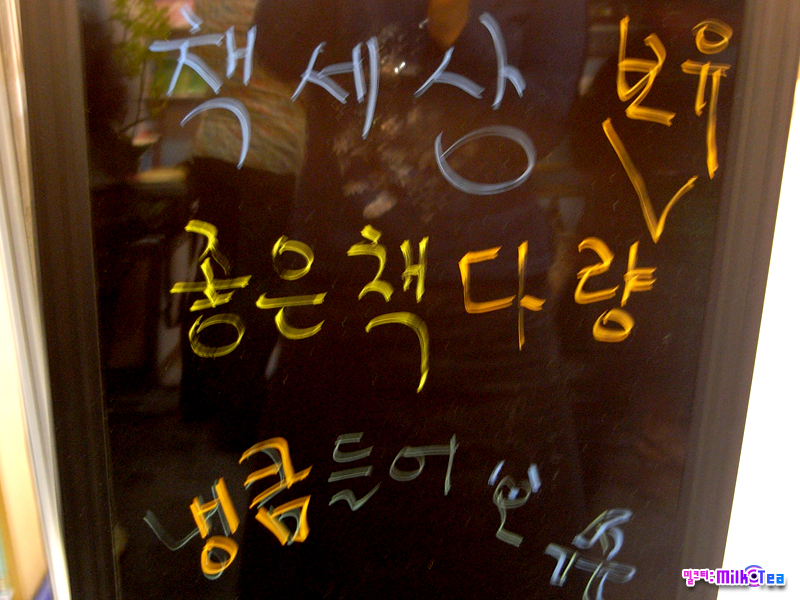 책 세 상
보유
좋은책 다량
냉큼 들어 온
밀크티: MilkTea